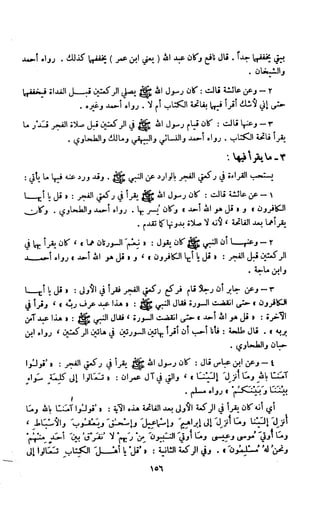 بيتي يخففهما جداً . قال نافع وكان عبد الله ( يعني ابن عمر ) يخففهما كذلك . رواه أحمد
والشيخان .
٢ – وعن عائشة قالت : كان رسول الله ﷺ يصلي الركعتين قبل الغداة فيخففهما
حتى إني لأشك أقرأ فيهما بفاتحة الكتاب أم لا . رواه أحمد وغيره .
٣ – وعنها قالت : كان قيام رسول الله ﷺ في الركعتين قبل صلاة الفجر قدر ما
يقرأ فاتحة الكتاب . رواه أحمد والنسائي والبيهقي ومالك والطحاوي .
٣ – ما يقرأ فيها :
يستحب القراءة في ركعتي الفجر بالوارد عن النبي ﷺ . وقد ورد عنه فيها ما يأتي :
١ – عن عائشة قالت : كان رسول الله ﷺ يقرأ في ركعتي الفجر : « قل يا أيها
الكافرون » و « قل هو الله أحد » وكان يسر بها . رواه أحمد والطحاوي . وكان
يقرأهما بعد الفاتحة « لأنه لا صلاة بدونها كما تقدم .
٢ – وعنها أن النبي ﷺ كان يقول : « نعم السورتان هما » كان يقرأ بها في
الركعتين قبل الفجر : « قل يا أيها الكافرون » ، و « قل هو الله أحد » رواه أحمد
وابن ماجة .
٣ – وعن جابر أن رجلا قام فركع ركعتي الفجر فقرأ في الأولى : « قل يا أيها
الكافرون » حتى انقضت السورة فقال النبي ﷺ : « هذا عبد عرف ربه » ، وقرأ في
الآخرة : « قل هو الله أحد » حتى انقضت السورة ، فقال النبي ﷺ : « هذا عبد آمن
بربه » . قال طلحة : فأنا أحب أن أقرأ بهاتين السورتين في هاتين الركعتين . رواه ابن
حبان والطحاوي .
٤ – وعن ابن عباس قال : كان رسول الله ﷺ يقرأ في ركعتي الفجر : « قولوا
آمنا بالله وما أنزل إلينا » ، والتي في آل عمران : « تعالوا إلى كلمة سواء
بيننا وبينكم » رواه مسلم .
أي أنه كان يقرأ في الركعة الأولى بعد الفاتحة هذه الآية : « قولوا آمنا بالله وما
أنزل إلينا وما أنزل إلى إبراهيم وإسماعيل وإسحق ويعقوب والأسباط ،
وما أوتي موسى وعيسى وما أوتي النبيون من ربهم لا نفرق بين أحد منهم
ونحن له مسلمون » . وفي الركعة الثانية : « قل يا أهل الكتاب تعالوا إلى
١٥٦